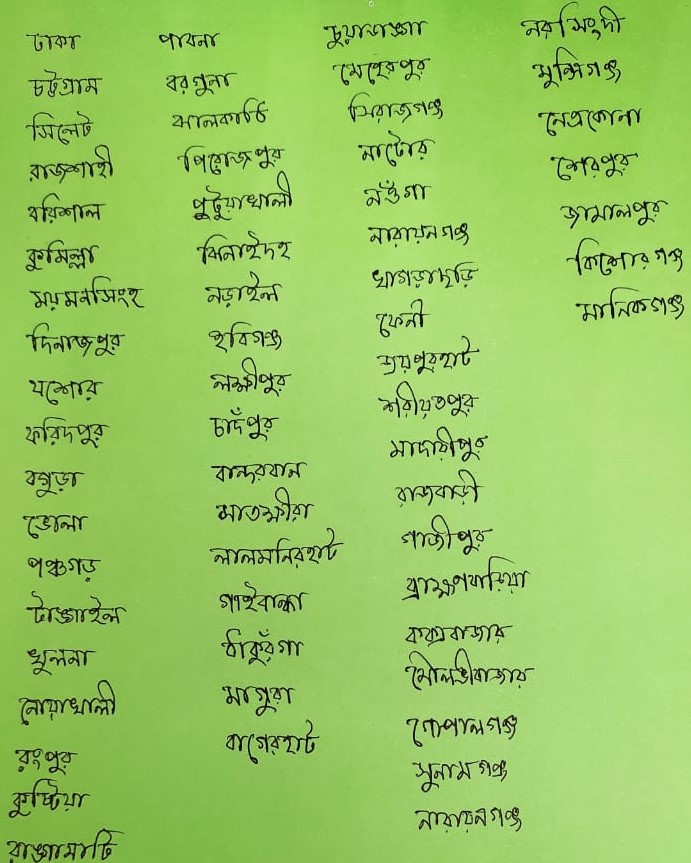 ঢাকা
চট্টগ্রাম
সিলেট
রাজশাহী
বরিশাল
কুমিল্লা
ময়মনসিংহ
দিনাজপুর
যশোর
ফরিদপুর
বগুড়া
ভোলা
পঞ্চগড়
টাঙ্গাইল
খুলনা
নোয়াখালী
রংপুর
কুষ্টিয়া
রাঙ্গামাটি
পাবনা
বরগুনা
ঝালকাঠি
পিরোজপুর
পুটুয়াখালী
ঝিনাইদহ
নড়াইল
হবিগঞ্জ
লক্ষীপুর
চাদঁপুর
বান্দরবান
সাতক্ষীরা
লালমনিরহাট
গাইবান্ধা
ঠাকুরঁগা
মাগুরা
বাগেরহাট
চুয়াডাঙ্গা
মেহেরপুর
সিরাজগঞ্জ
নাটোর
নওঁগা
নারায়নগঞ্জ
খাগড়াছড়ি
ফেনী
জয়পুরহাট
শরীয়তপুর
মাদারীপুর
রাজবাড়ী
গাজীপুর
ব্রাহ্মণবাড়িয়া
কক্সবাজার
মৌলভীবাজার
গোপালগঞ্জ
সুনামগঞ্জ
নারায়নগঞ্জ
নরসিংদী
মুন্সিগঞ্জ
নেত্রকোনা
শেরপুর
জামালপুর
কিশোরগঞ্জ
মানিকগঞ্জ